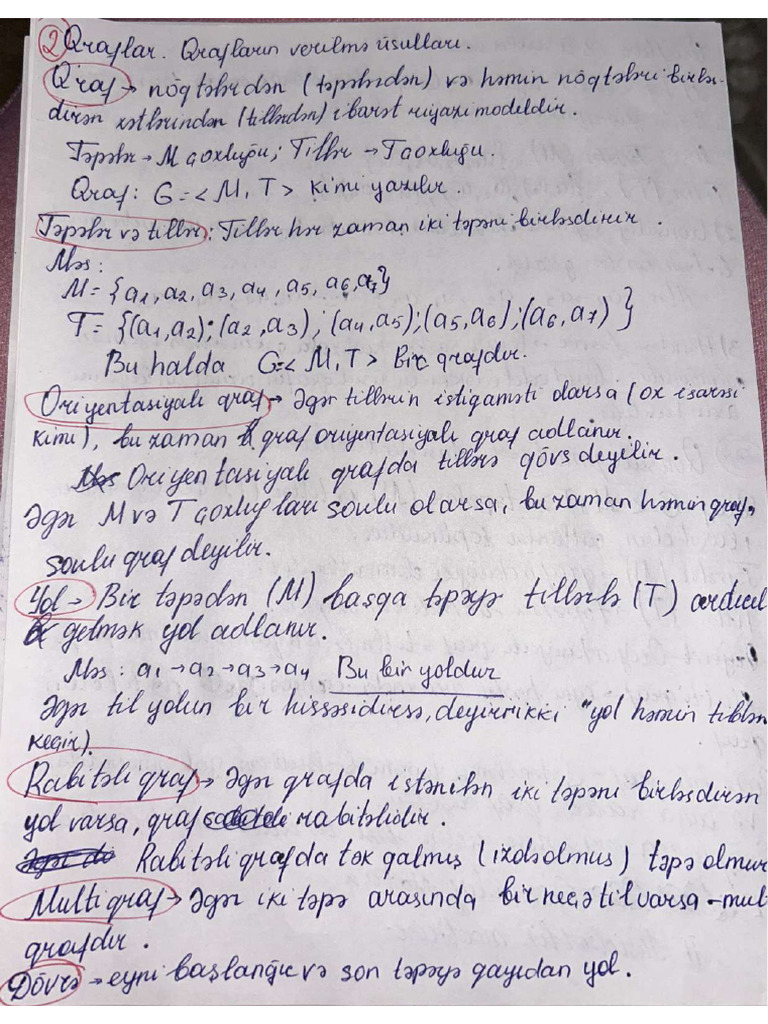 2 Qraflar. Qrafların verilmə üsulları.
Qraf → nöqtələrdən (təpələrdən) və həmin nöqtələri birləş-
dirən xətlərindən (tillərdən) ibarət riyazi modeldir.
Təpələr → M çoxluğu; Tillər → T çoxluğu.
Qraf: G = <M, T> kimi yazılır.
Təpələr və tillər: Tillər hər zaman iki təpəni birləşdirir.
Məs:
M = {a1, a2, a3, a4, a5, a6, a7}
T = {(a1, a2); (a2, a3); (a4, a5); (a5, a6); (a6, a7)}
Bu halda G = <M, T> bir qrafdır.
Oriyentasiyalı qraf → Əgər tillərin istiqaməti olarsa (ox işarəsi
kimi), bu zaman qraf oriyentasiyalı qraf adlanır.
Oriyentasiyalı qrafda tillərə qövs deyilir.
Əgər M və T çoxluqları sonlu olarsa, bu zaman həmin qraf,
sonlu qraf deyilir.
Yol → Bir təpədən (M) başqa təpəyə tillərlə (T) ardıcıl
getmək yol adlanır.
Məs: a1 → a2 → a3 → a4 Bu bir yoldur
Əgər til yolun bir hissəsidirsə, deyirikki "yol həmin tildən
keçir).
Rabitəli qraf → Əgər qrafda istənilən iki təpəni birləşdirən
yol varsa, qraf rabitəlidir.
Rabitəli qrafda tək qalmış (izolə olmuş) təpə olmur
Multiqraf → Əgər iki təpə arasında bir neçə til varsa - mul
qrafdır.
Dövrə → eyni başlanğıc və son təpəyə qayıdan yol.